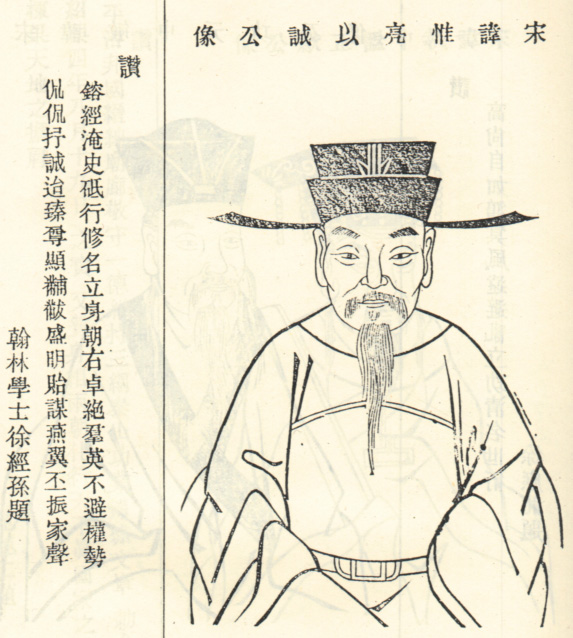 宋諱惟亮以誠公像
讚
鎔經淹史砥行修名立身朝右卓絶羣英不避權勢
侃侃抒誠迨臻尊顯黼黻盛明貽謀燕翼丕振家聲
翰林學士徐經孫題